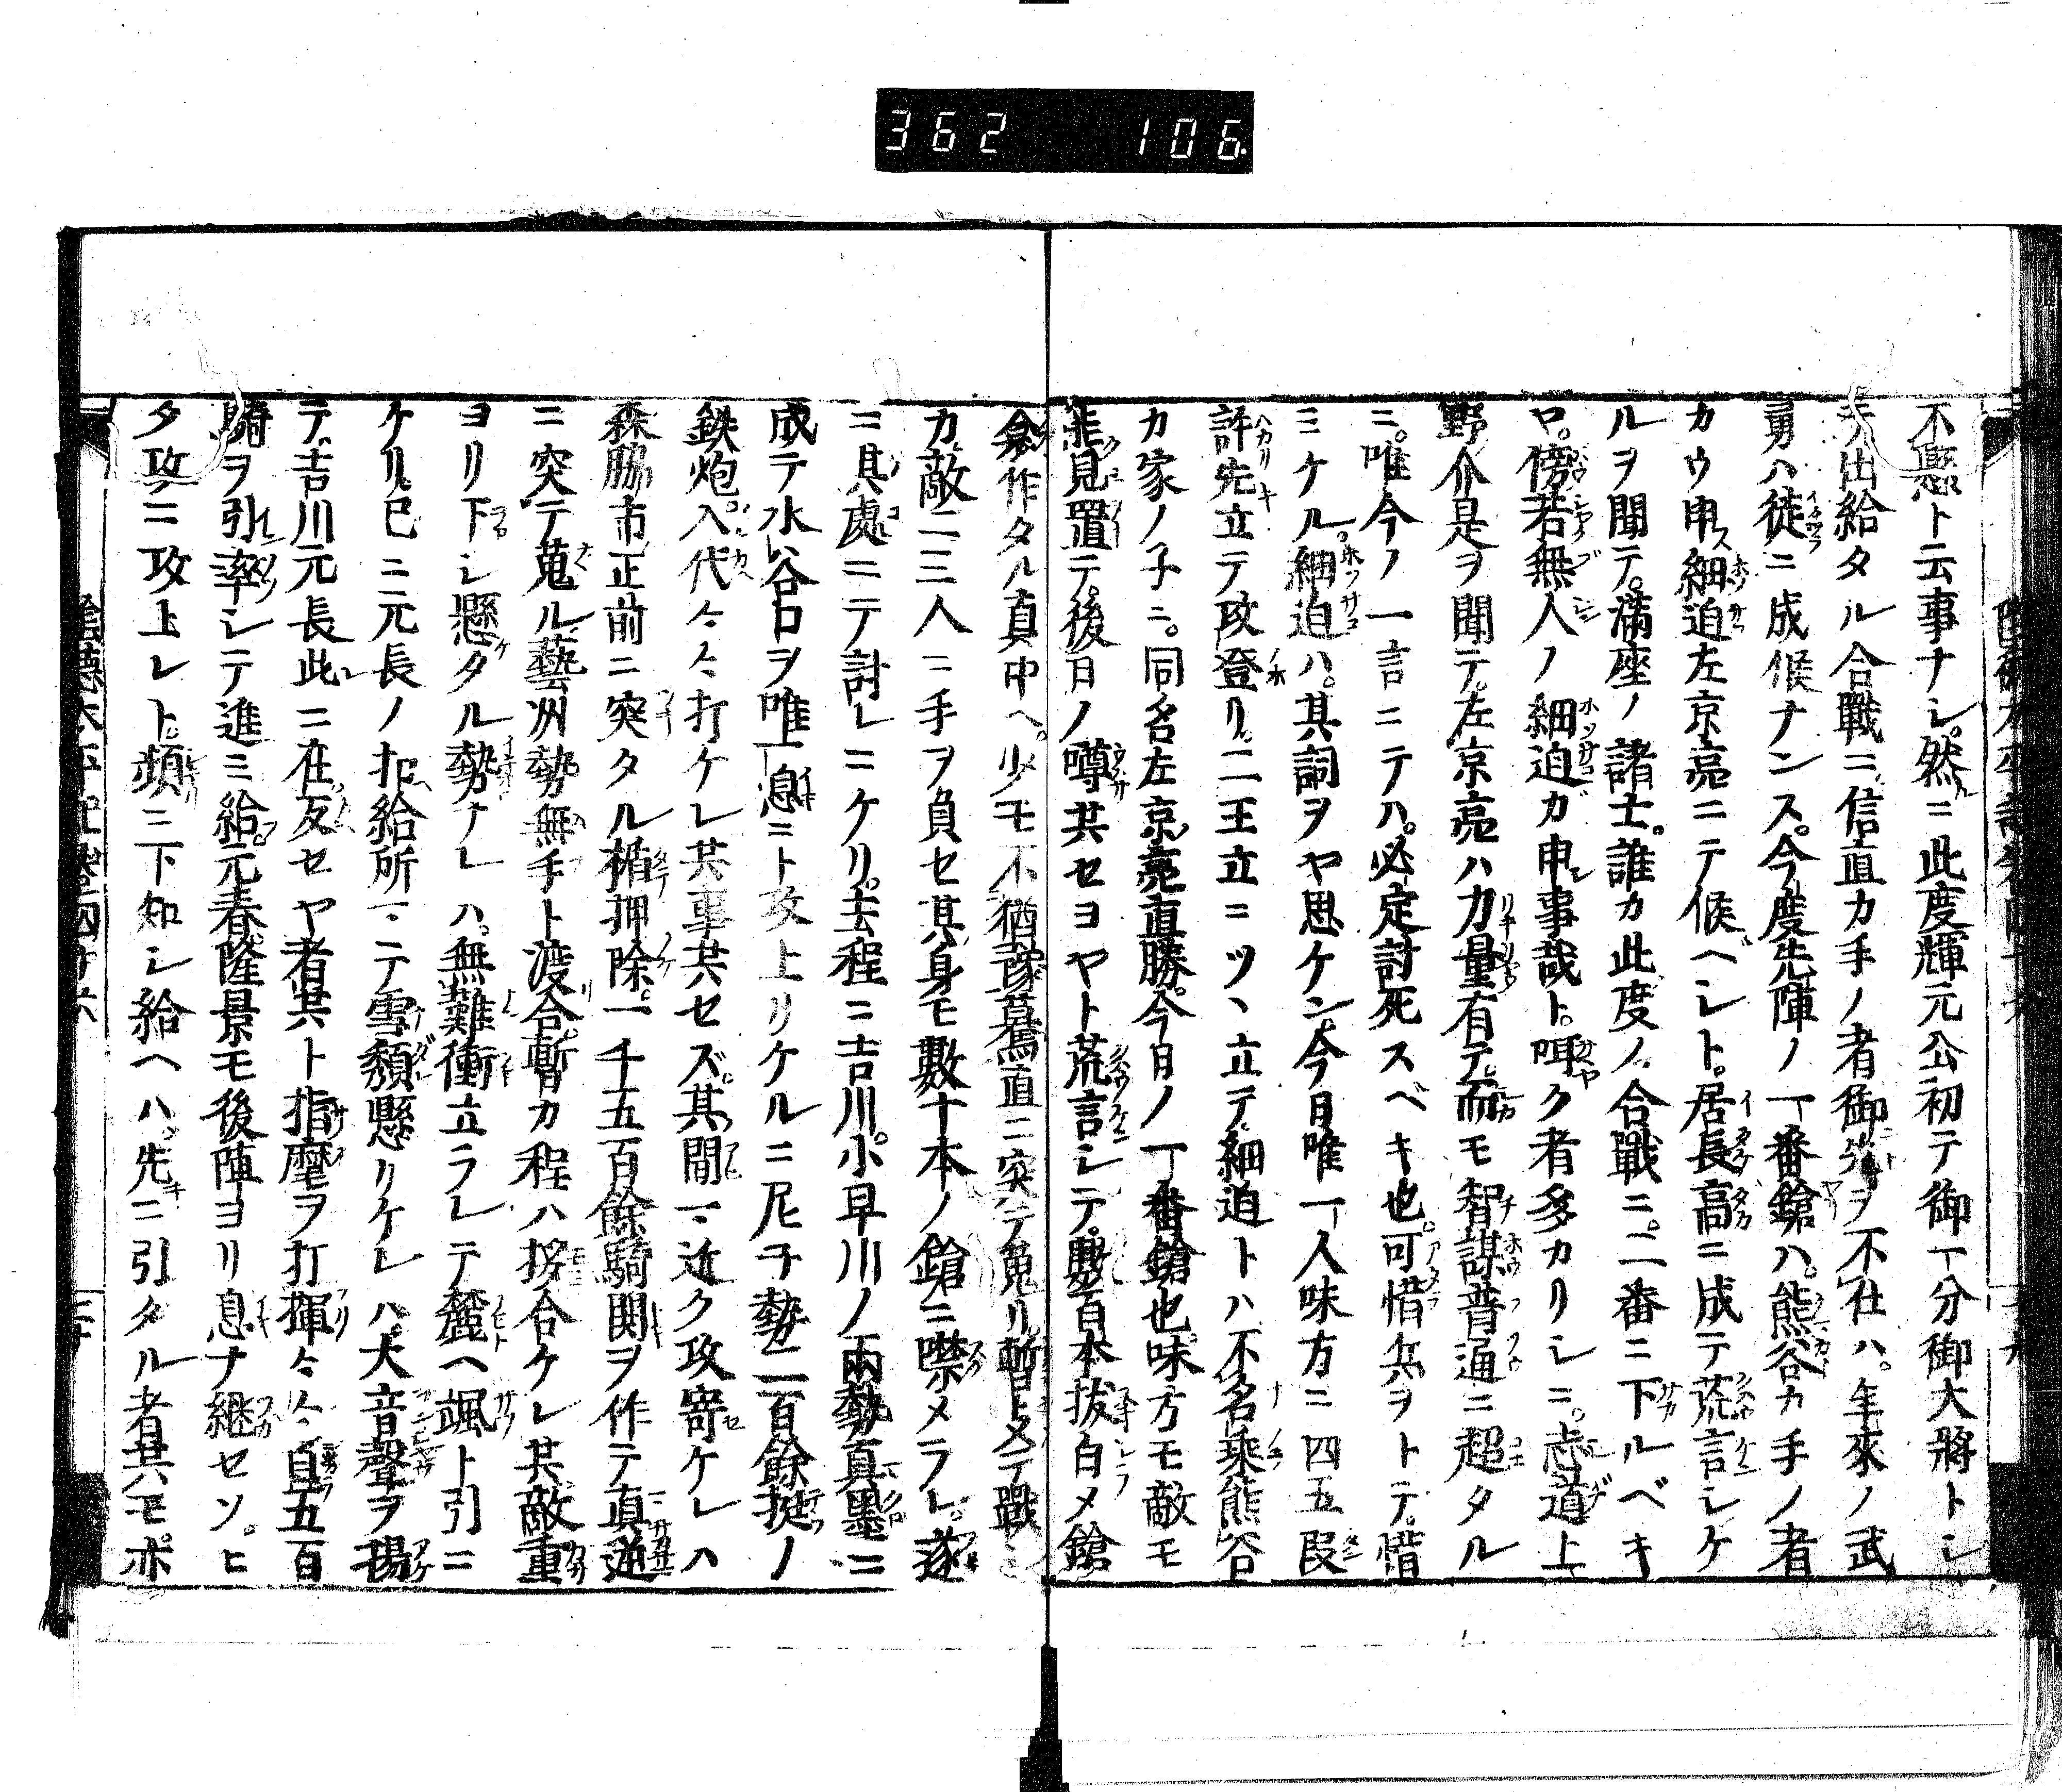 362 106
不懸ト云事ナシ。然ニ此度輝元公初テ御一分御大將トシ
テ出給タル合戰ニ。信直カ手ノ者御先ヲ不仕ハ。年來ノ武
勇ハ徒ニ成候ナンス。今度先陣ノ一番鎗ハ。熊谷カ手ノ者
カウ申ス細迫左京亮ニテ候ヘシト。居長高ニ成テ荒言シケ
ルヲ聞テ。滿座ノ諸士。誰カ此度ノ合戰ニ。二番ニ下ルベキ
ロ。傍若無人ノ細迫ガ申事哉ト。咡ク者多カリシニ。志道上
野介是ヲ聞テ。左京亮ハ力量有テ。而モ智謀普通ニ超タル
ニ。唯今ノ一言ニテハ。必定討死スベキ也。可惜兵ヲトテ。惜
ミケル。細迫ハ。其詞ヲヤ思ケン。今日唯一人味方ニ四五段
許先立テ攻登リ。二王立ニツヽ立テ。細迫トハ不名乘熊谷
カ家ノ子ニ。同名左京亮直勝。今日ノ一番鎗也。味方モ敵モ
能見置テ。後日ノ噂共セヨヤト荒言シテ。數百本拔白メ鎗
衾作タル真中ヘ。少モ不猶豫驀直ニ突テ蒐リ。暫上メテ戰シ
カ。敵二三人ニ手ヲ負セ其身モ數十本ノ鎗ニ噤メラレ。遂
ニ其處ニテ討レニケリ。去程ニ吉川。小早川ノ兩勢真墨ニ
成テ水谷口ヲ唯一息ニト攻上リケルニ尼子勢二百餘挺ノ
鉄炮。入代々々打ケレ共事共セズ。其間一近ク攻寄ケレハ
森脇市正前ニ突タル楯押除。一千五百餘騎関ヲ作テ真逆
ニ突テ蒐ル藝州勢無手ト渡合。暫カ程ハ挊合ケレ共敵重
ヨリ下シ懸タル勢ナレハ。無難衝立ラレテ麓ヘ颯ト引ニ
ケリ。已ニ元長ノ扣給所一ニテ雪頽懸リケレハ。大音聲ヲ揚
テ。吉川元長此ニ在。反セヤ者共ト指麾ヲ打揮々々自五百
騎ヲ引率シテ進ミ給。元春。隆景モ後陣ヨリ息ナ継セソ。ヒ
タ攻ニ攻上レト。頻ニ下知シ給ヘハ。先ニ引タル者共モポ